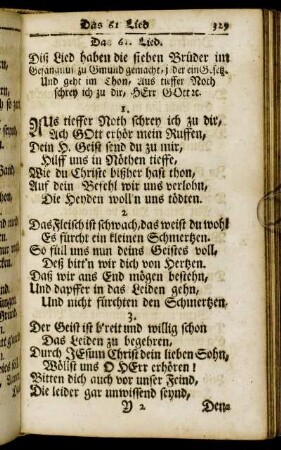 Das 61 Lied
329
Das 61. Lied.
Diß Lied haben die sieben Brüder im
Gefängnuß zu Gmund gemacht, jeder ein Gsetz.
Und geht im Thon, Aus tieffer Noth
schrey ich zu dir, HErr GOtt ꝛc.
1.
AUs tieffer Noth schrey ich zu dir,
Ach GOtt erhör mein Ruffen,
Dein H. Geist send du zu mir,
Hilff uns in Nöthen tieffe,
Wie du Christe bißher hast thon,
Auf dein Befehl wir uns verlohn,
Die Heyden woll'n uns tödten.
2
Das Fleisch ist schwach, das weist du wohl
Es fürcht ein kleinen Schmertzen.
So füll uns nun deins Geistes voll,
Deß bitt'n wir dich von Hertzen.
Daß wir ans End mögen bestehn,
Und dapffer in das Leiden gehn,
Und nicht fürchten den Schmertzen.
3.
Der Geist ist b'reit und willig schon
Das Leiden zu begehren,
Durch JEsum Christ dein lieben Sohn,
Wöllst uns O HErr erhören!
Bitten dich auch vor unser Feind,
Die leider gar unwissend seynd,
Y 2
Den-